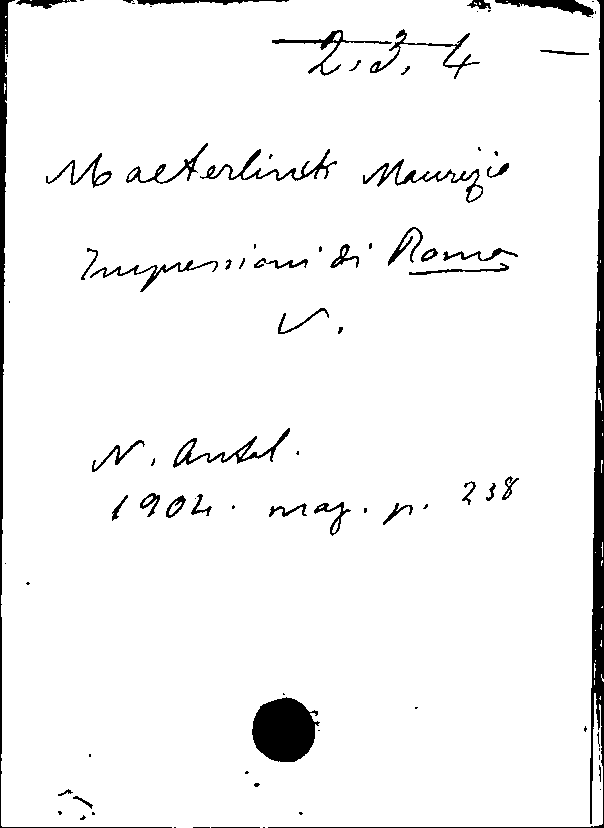 2.3.4
Maeterlinck Maurizio
Impressioni di Roma
V.
N. Antol.
1904. mag. p. 238